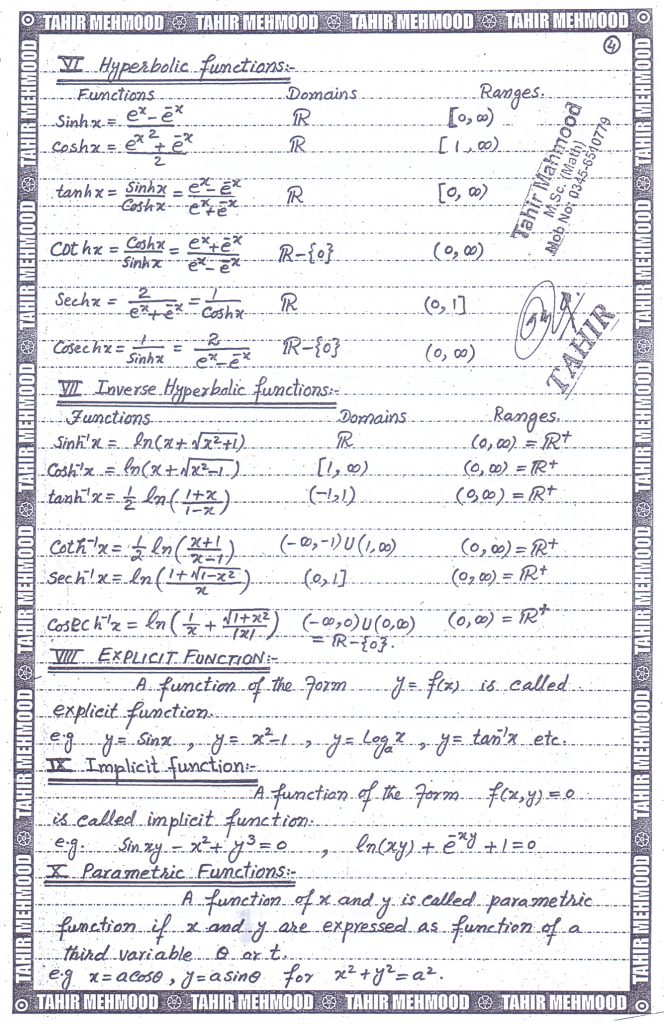 TAHIR MEHMOOD TAHIR MEHMOOD TAHIR MEHMOOD TAHIR MEHMOOD
4
VI Hyperbolic functions:-
Functions Domains Ranges.
Sinhx = (e^x - e^-x)/2 ℝ [0,∞)
Coshx = (e^x + e^-x)/2 ℝ [1,∞)
tanhx = Sinhx/Coshx = (e^x - e^-x)/(e^x + e^-x) ℝ [0,∞)
Cothx = Coshx/Sinhx = (e^x + e^-x)/(e^x - e^-x) ℝ-{0} (0,∞)
Sechx = 2/(e^x + e^-x) = 1/Coshx ℝ (0,1]
Cosechx = 1/Sinhx = 2/(e^x - e^-x) ℝ-{0} (0,∞)
Tahir Mahmood
M.Sc. (Math)
Mob No: 0345-6510779
TAHIR
VII Inverse Hyperbolic functions:-
Functions Domains Ranges.
Sinh⁻¹x = ln(x+√(x²+1)) ℝ (0,∞) = ℝ⁺
Cosh⁻¹x = ln(x+√(x²-1)) [1,∞) (0,∞) = ℝ⁺
tanh⁻¹x = 1/2 ln((1+x)/(1-x)) (-1,1) (0,∞) = ℝ⁺
Coth⁻¹x = 1/2 ln((x+1)/(x-1)) (-∞,-1)U(1,∞) (0,∞) = ℝ⁺
Sech⁻¹x = ln((1+√(1-x²))/x) (0,1] (0,∞) = ℝ⁺
Cosech⁻¹x = ln(1/x + √(1+x²)/|x|) (-∞,0)U(0,∞) (0,∞) = ℝ⁺
= ℝ-{0}.
VIII EXPLICIT FUNCTION:-
A function of the Form y = f(x) is called
explicit function.
e.g y = Sinx , y = x²-1 , y = Logₐx , y = tan⁻¹x etc.
IX Implicit function:-
A function of the Form f(x,y) = 0
is called implicit function.
e.g. Sin xy - x² + y³ = 0 , ln(xy) + e^-xy + 1 = 0
X Parametric Functions:-
A function of x and y is called parametric
function if x and y are expressed as function of a
third variable θ or t.
e.g x = acosθ , y = asinθ for x² + y² = a².
TAHIR MEHMOOD TAHIR MEHMOOD TAHIR MEHMOOD TAHIR MEHMOOD